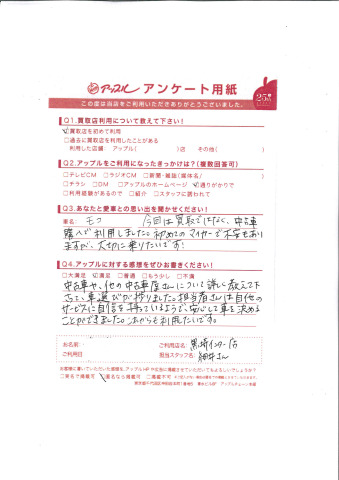 アップル アンケート用紙
25周年
この度は当店をご利用いただきありがとうございました。
Q1.買取店利用について教えて下さい！
☑買取店を初めて利用
□過去に買取店を利用したことがある
利用した店舗 アップル( )店 その他( )
Q2.アップルをご利用になったきっかけは？(複数回答可)
□テレビCM □ラジオCM □新聞・雑誌(媒体名 )
□チラシ □DM □アップルのホームページ ☑通りがかりで
□利用経験があるので □紹介 □スタッフに誘われて
Q3.あなたと愛車との思い出を聞かせください！
車名: モコ 今回は買取ではなく、中古車
購入で利用しました。初めてのマイカーで不安もあり
ますが、大切に乗りたいです！
Q4.アップルに対する感想をぜひお書きください！
□大満足 ☑満足 □普通 □もう少し □不満
中古車や、他の中古車屋さんについて詳しく教えて下
さって、車選びが捗りました。担当者さんは自他の
サービスに自信を持っているようで、安心して車を決める
ことができました。これからも利用したいです。
お名前:
ご利用店名: 黒崎インター店
ご利用日
担当スタッフ名: 細井さん
お客様に書いていただいた感想を、アップルHPや広告に掲載させていただいてもよろしいでしょうか？
□実名で掲載可 ☑匿名なら掲載可 □掲載不可